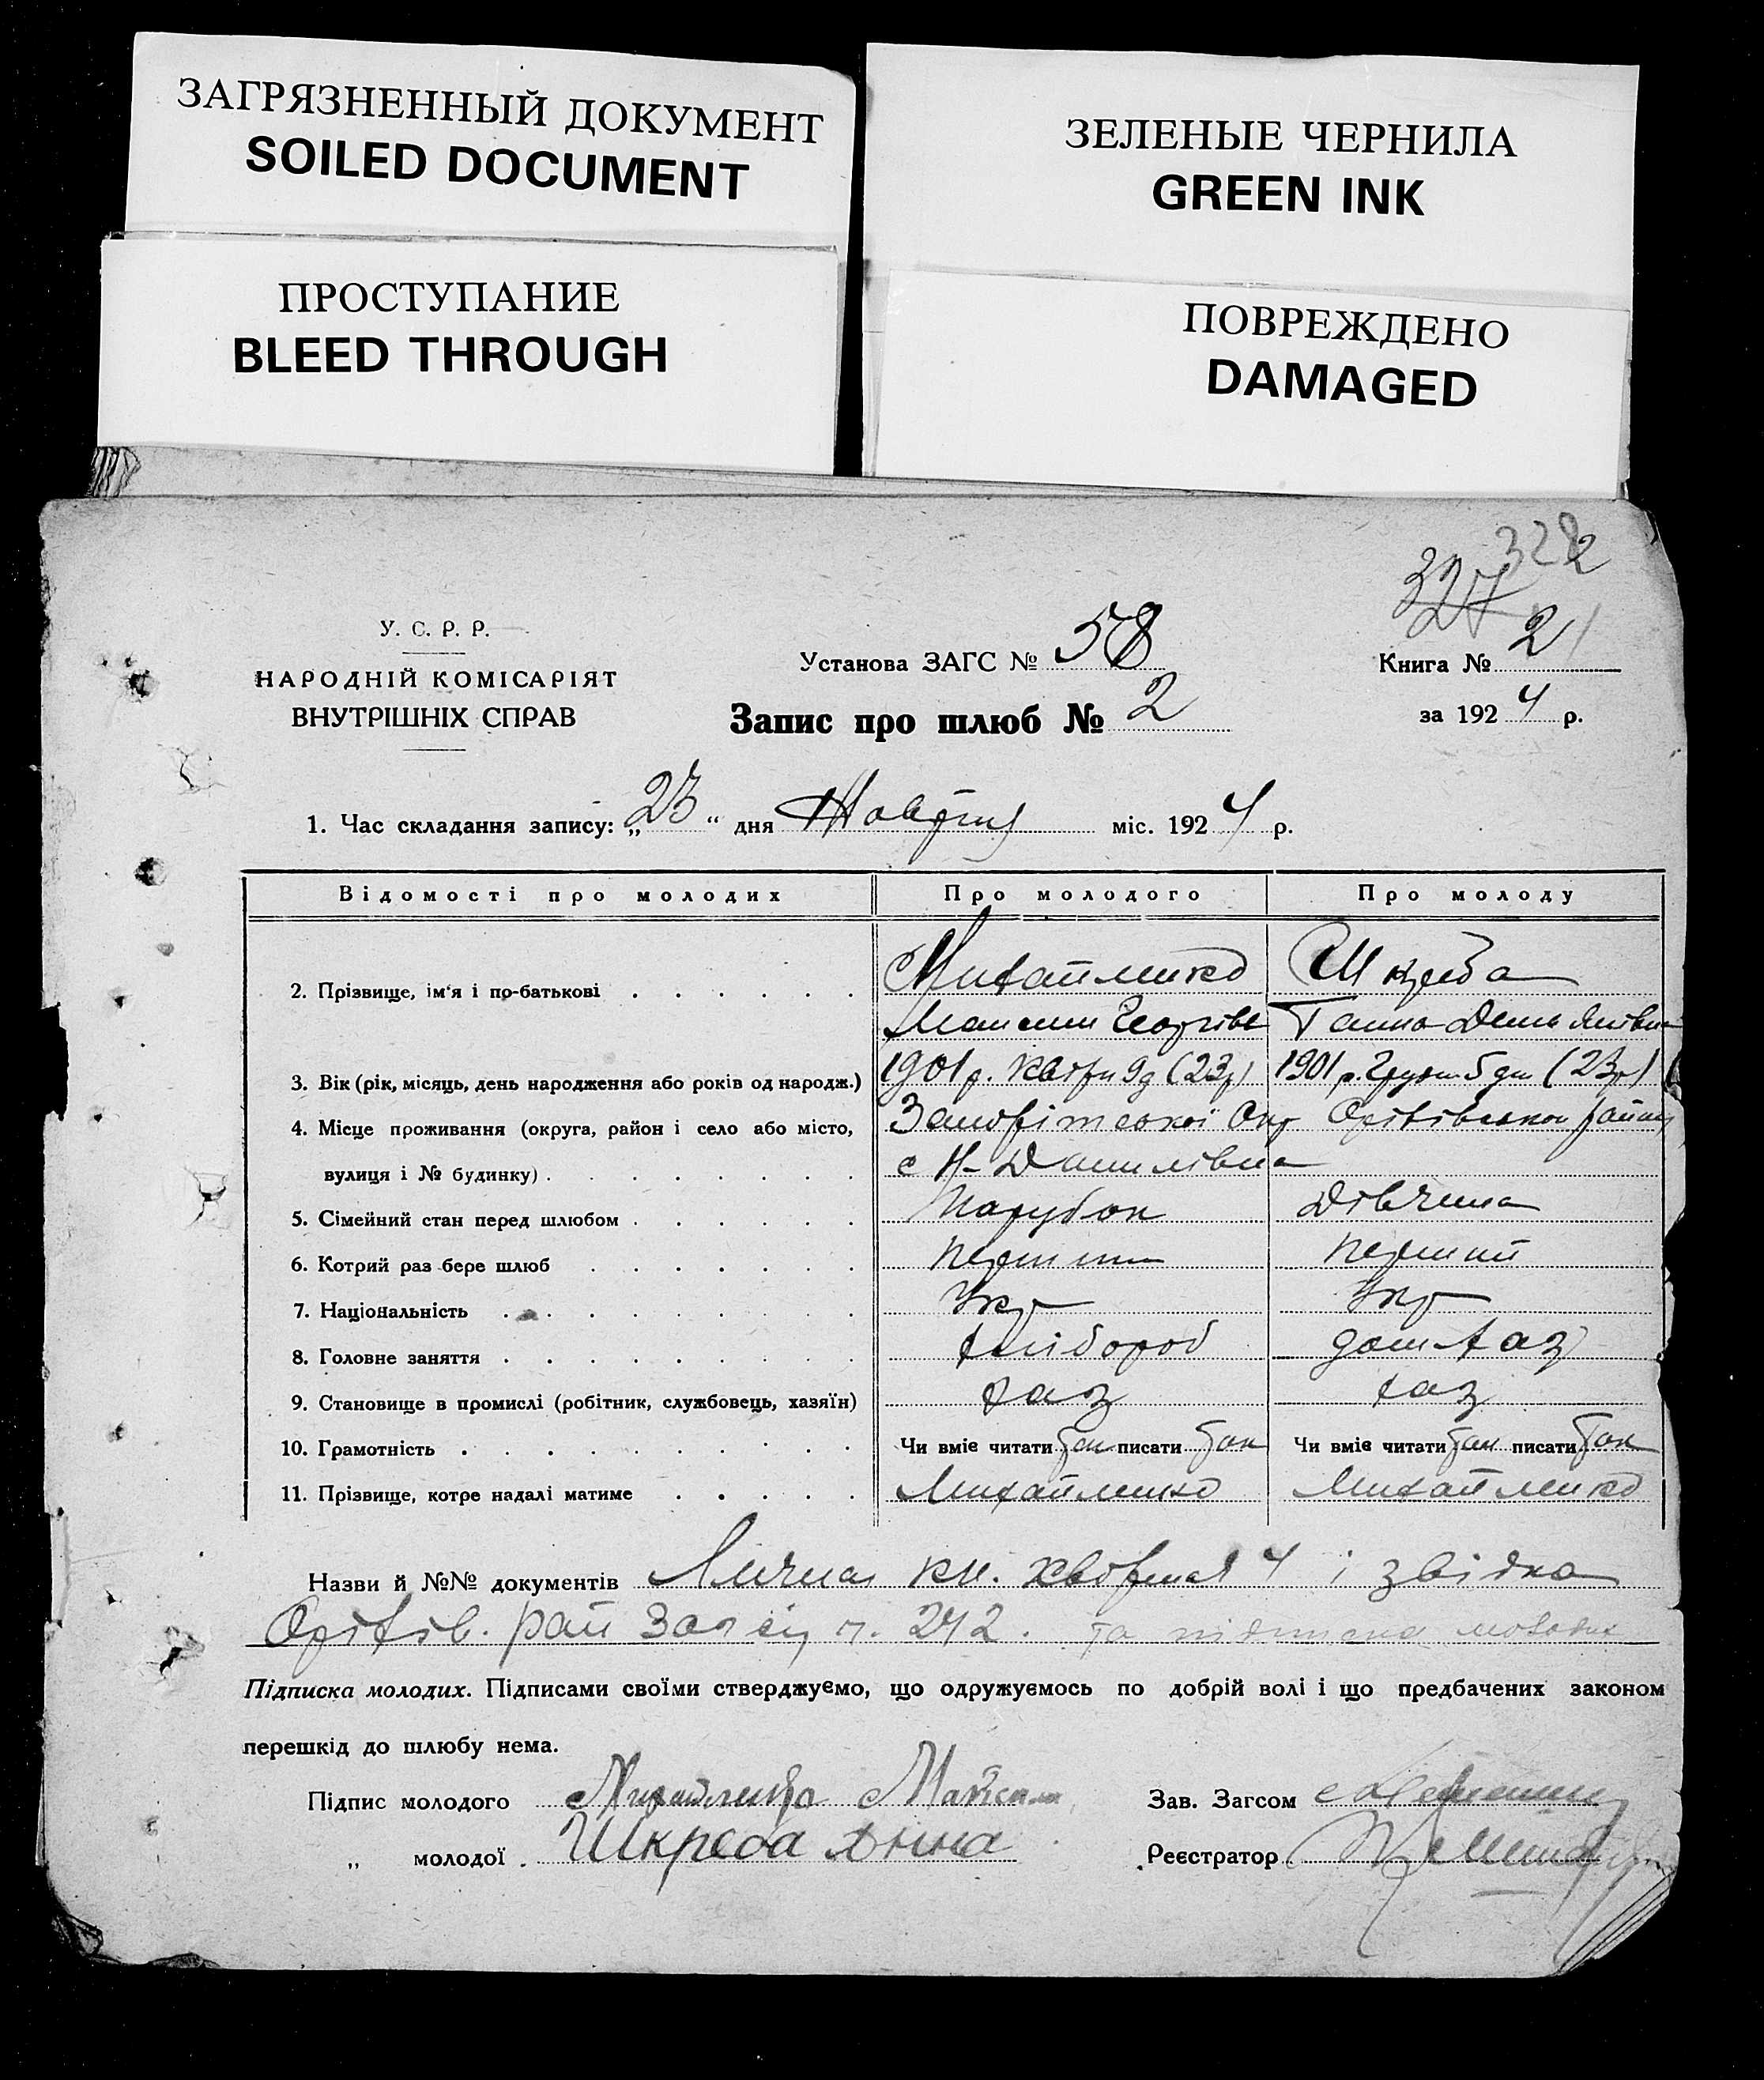 ЗАГРЯЗНЕННЫЙ ДОКУМЕНТ
SOILED DOCUMENT
ЗЕЛЕНЫЕ ЧЕРНИЛА
GREEN INK
ПРОСТУПАНИЕ
BLEED THROUGH
ПОВРЕЖДЕНО
DAMAGED
322
327
У. С. Р. Р.
НАРОДНІЙ КОМІСАРІЯТ
ВНУТРІШНІХ СПРАВ
Установа ЗАГС № 58
Запис про шлюб № 2
Книга № 2
за 1924 р.
1. Час складання запису: „23“ дня Жовтня міс. 1924 р.
Відомості про молодих Про молодого Про молоду
2. Прізвище, ім'я і по-батькові Михайленко Шкреба
Георгієв Ганна Демьянівна
3. Вік (рік, місяць, день народження або років од народж.) 1901 р. 9д (23р) 1901 р. 5 дн (23р)
4. Місце проживання (округа, район і село або місто, Запоріжської Окр Оріхівського району
вулиця і № будинку) с Н-Данилівна
5. Сімейний стан перед шлюбом Парубок Дівчина
6. Котрий раз бере шлюб перший перший
7. Національність Укр Укр
8. Головне заняття хлібороб дом хаз
9. Становище в промислі (робітник, службовець, хазяїн) хаз хаз
10. Грамотність Чи вміє читати так писати так Чи вміє читати так писати так
11. Прізвище, котре надалі матиме Михайленко Михайленко
Назви й №№ документів Лична кн. 4 і звідка
Оріхів. рай ч. 242. та підписка молодих
Підписка молодих. Підписами своїми стверджуємо, що одружуємось по добрій волі і що предбачених законом
перешкід до шлюбу нема.
Підпис молодого Михайленко Зав. Загсом
„ молодої Шкреба Анна Реєстратор